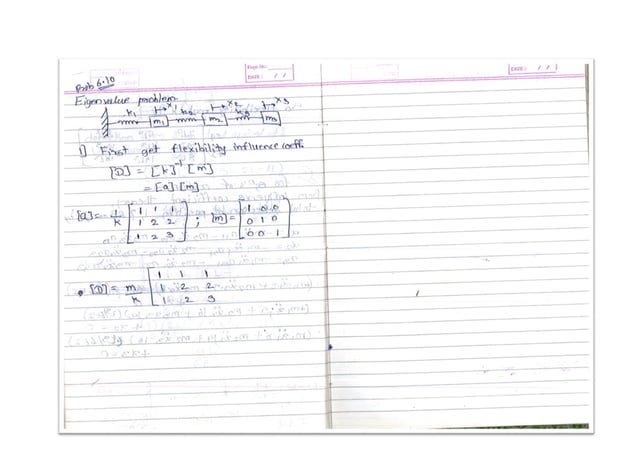 Page No:
DATE: / /
DATE: / /
Prob 6.10
Eigenvalue problem
k1 x1 k2 x2 k3 x3
m1 m2 m3
1] First get flexibility influence coeff.
[D] = [k]⁻¹ [m]
= [a] [m]
[a] = 1/k [1 1 1; 1 2 2; 1 2 3] ; [m] = [1 0 0; 0 1 0; 0 0 1]
• [D] = m/k [1 1 1; 1 2 2; 1 2 3]